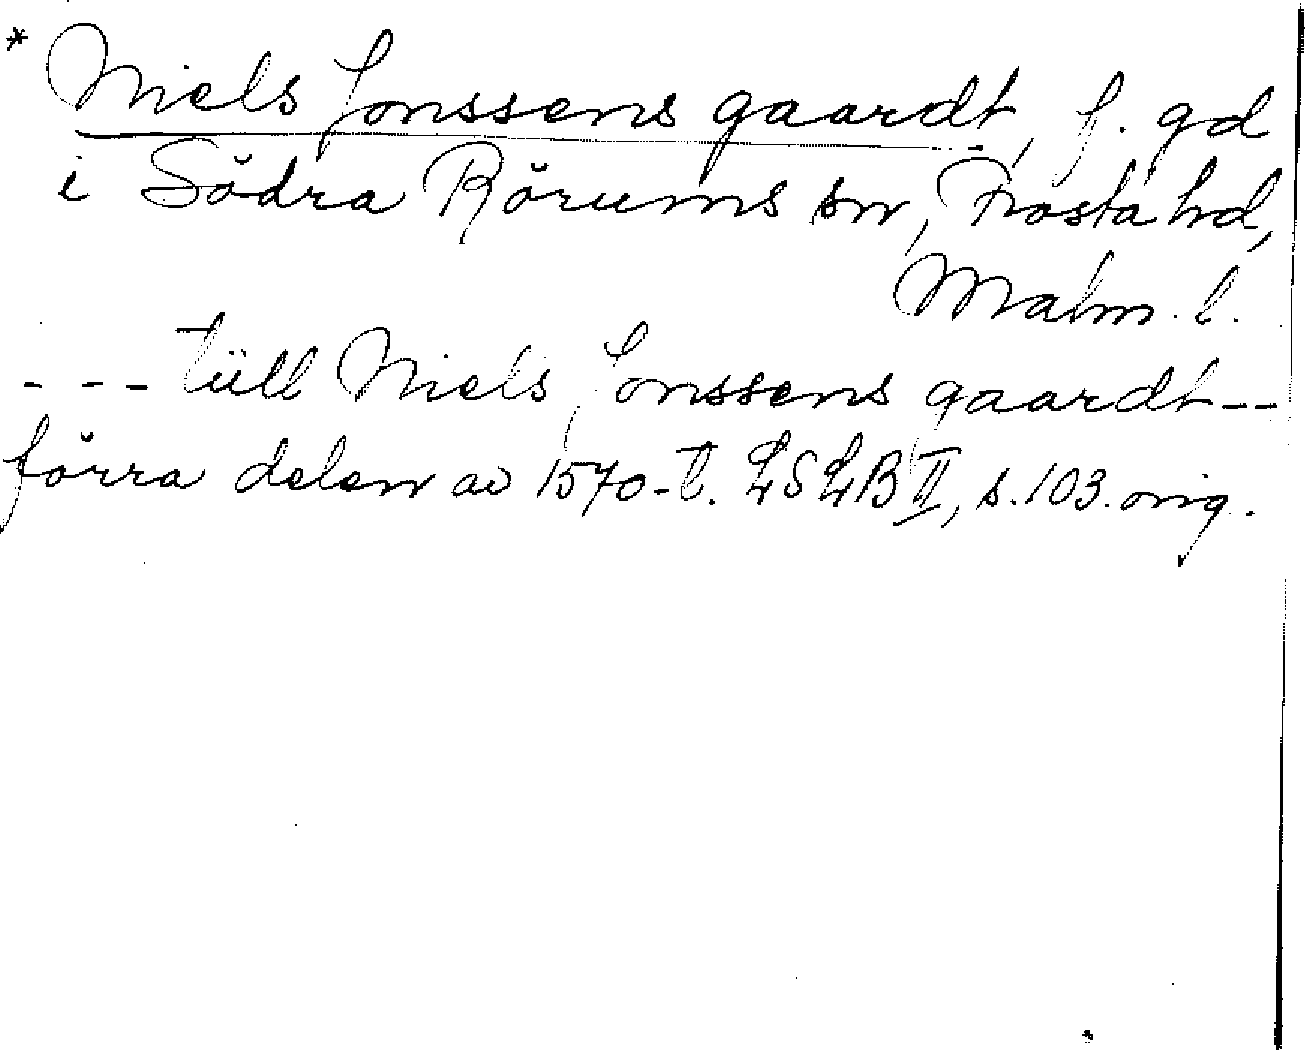 * Niels Jonssens gaardt, f. gd
i Södra Rörums sn, Frosta hd,
Malm. l.
--- tüll Niels Jonssens gaardt--
förra delen av 1570-t. LSLB II, s. 103. orig.